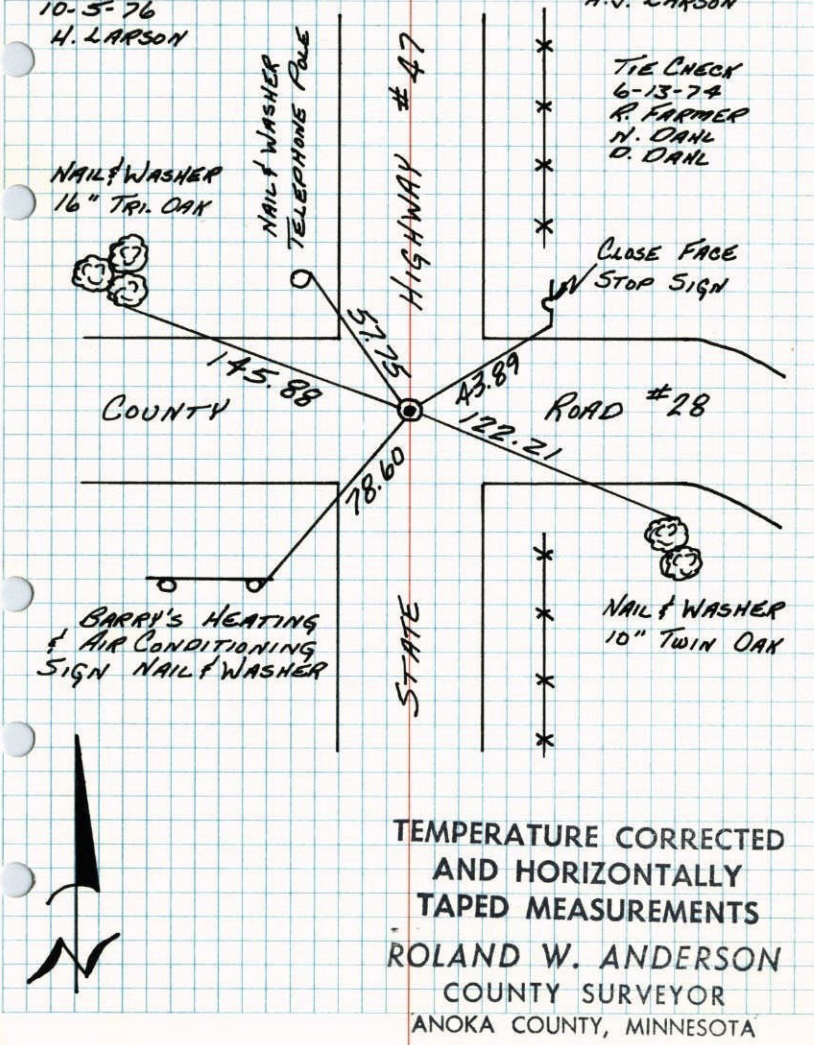 10-5-76
H. LARSON
A.J. LARSON
TIE CHECK
6-13-74
R. FARMER
N. DAHL
D. DAHL
NAIL & WASHER
TELEPHONE POLE
STATE HIGHWAY #47
NAIL & WASHER
16" TRI. OAK
CLOSE FACE
STOP SIGN
57.75
145.88
43.89
COUNTY ROAD #28
122.21
78.60
BARRY'S HEATING
& AIR CONDITIONING
SIGN NAIL & WASHER
NAIL & WASHER
10" TWIN OAK
N
TEMPERATURE CORRECTED
AND HORIZONTALLY
TAPED MEASUREMENTS
ROLAND W. ANDERSON
COUNTY SURVEYOR
ANOKA COUNTY, MINNESOTA